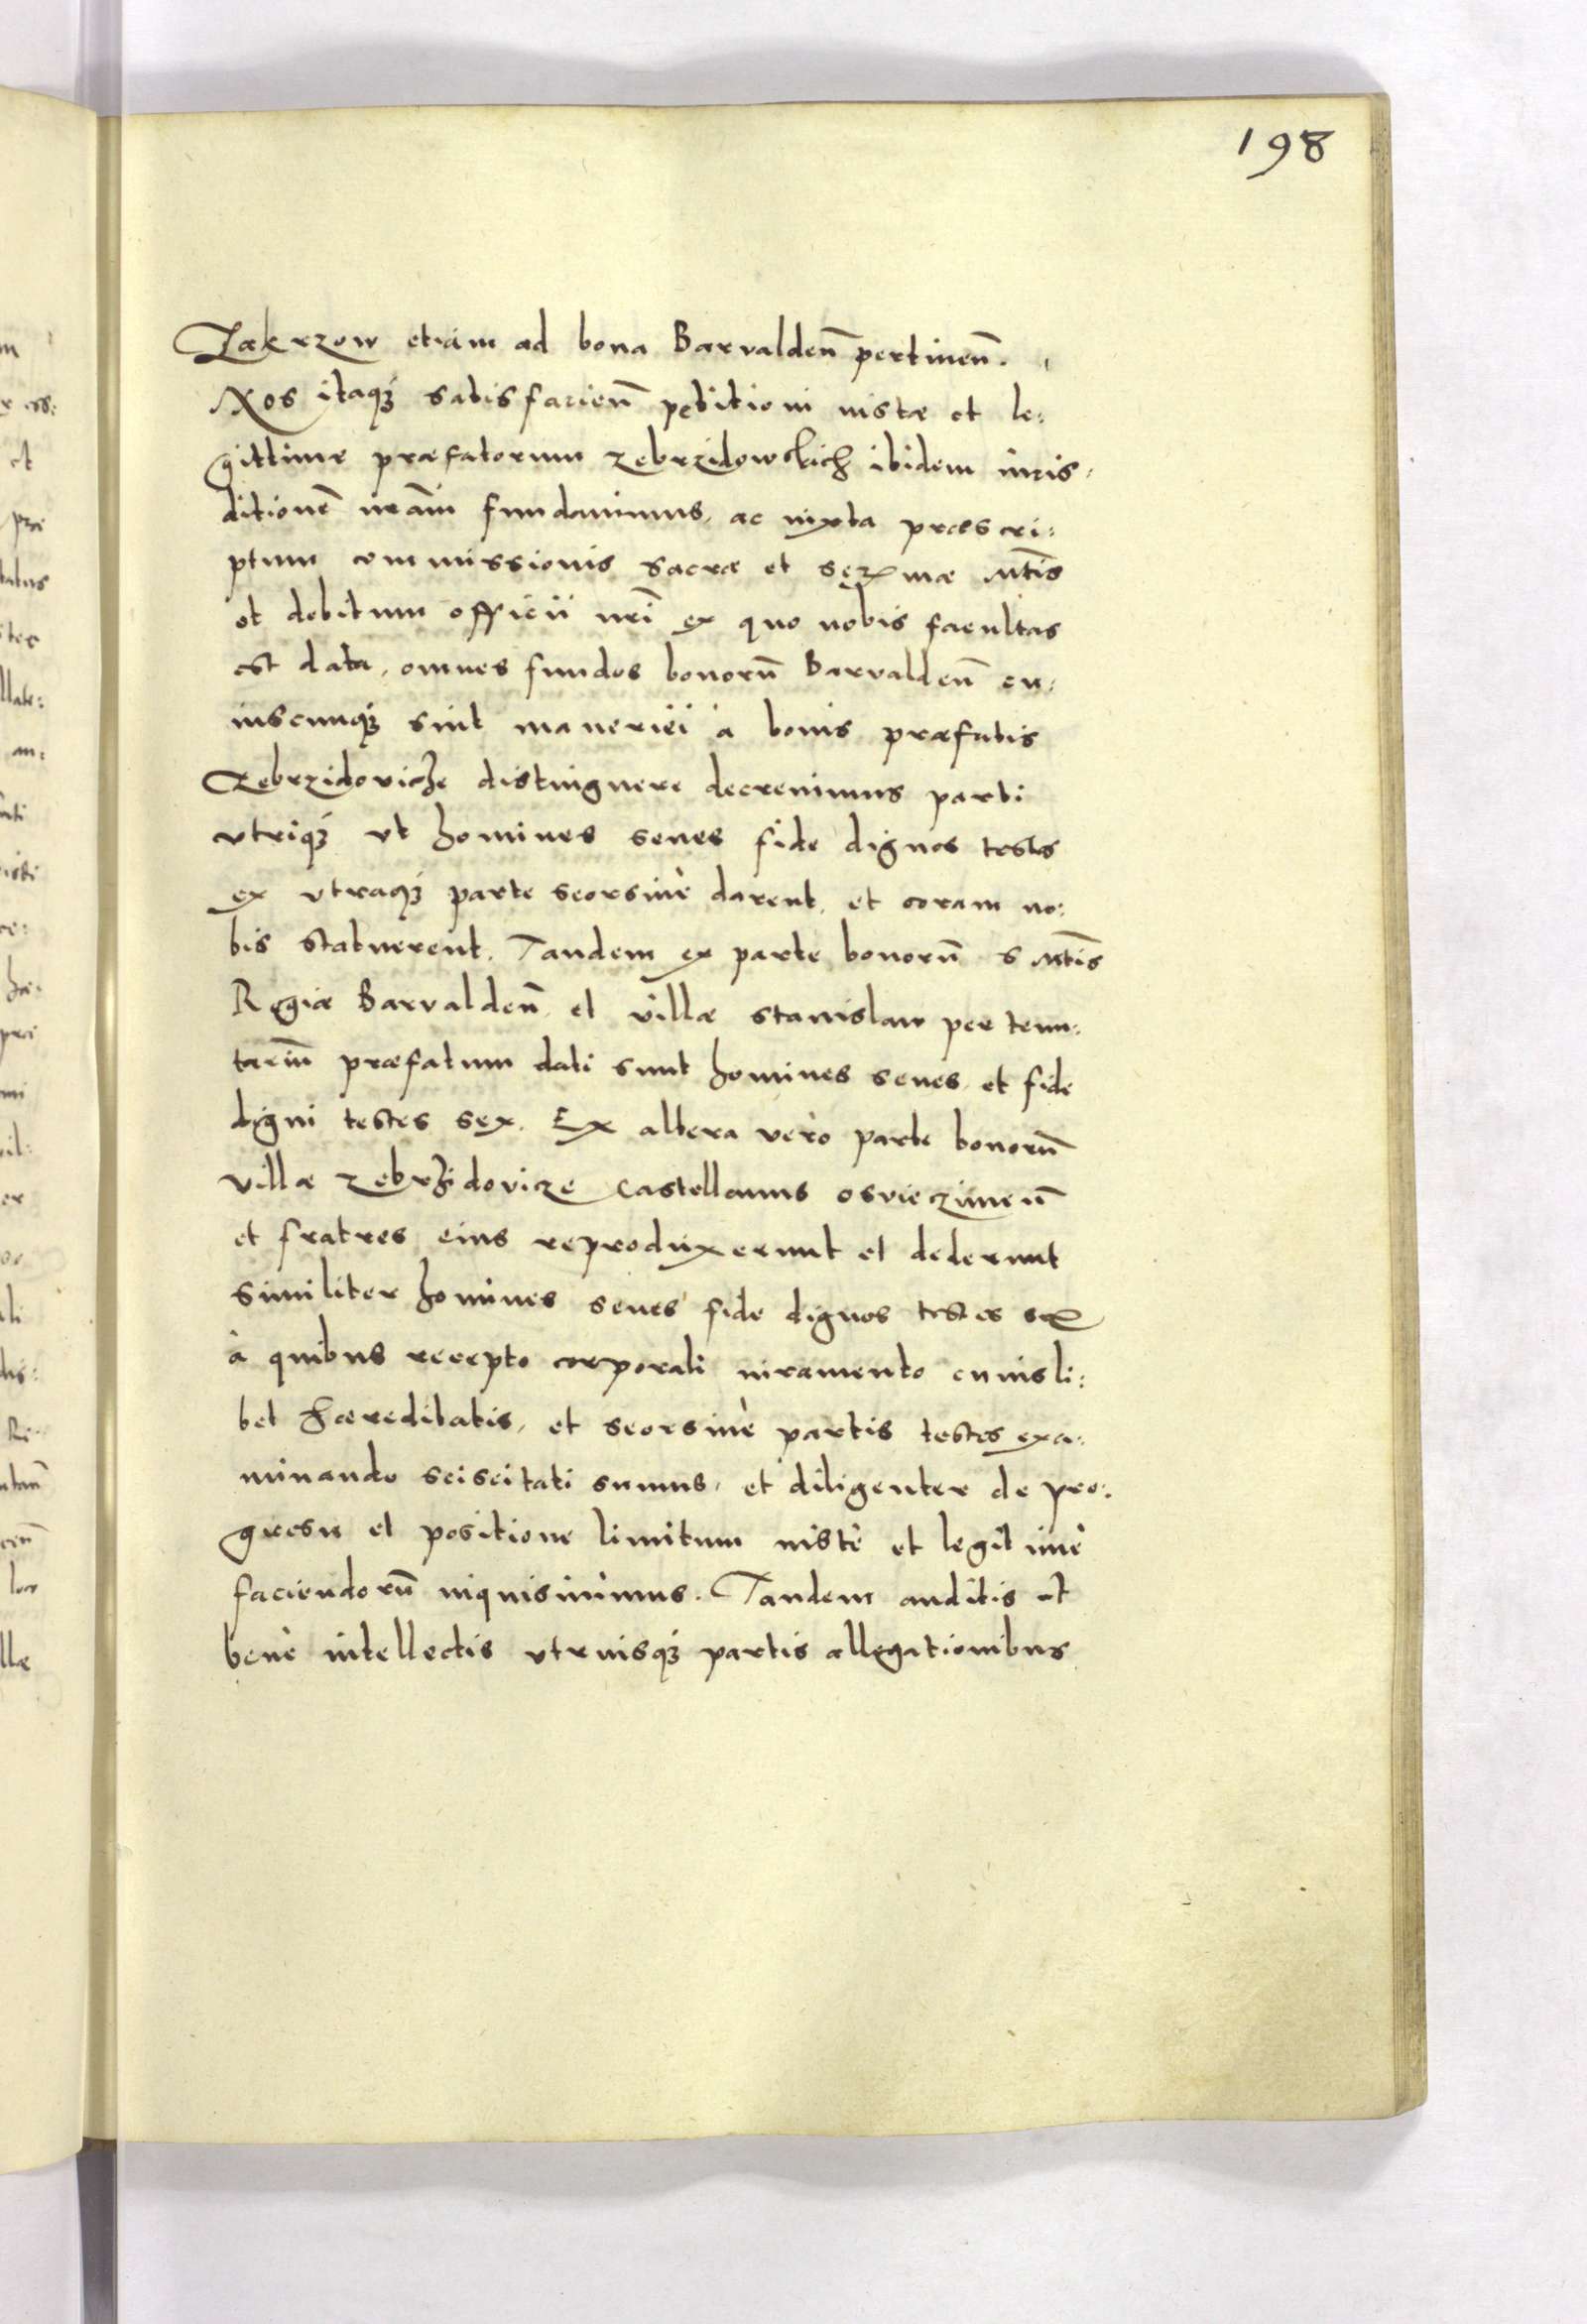 198
Zakrzow etiam ad bona Barvalden̄ pertinen̄.
Nos itaqꝫ satisfacien̄ petitioni iustæ et le:
gittime præfatorum zebrzidowskich ibidem iuris:
ditionē nr̄am fundauimus, ac iuxta præscri:
ptum commissionis sacræ et sermæ Mtīs
et debitum officii nrī ex quo nobis facultas
est data, omnes fundos bonorū Barvalden̄ cu:
iuscunqꝫ sint maneriei à bonis præfatis
Zebrzidovicze distinguere decreuimus parti
vtriqꝫ vt homines senes fide dignos testes
ex vtraqꝫ parte seorsiuè darent, et coram no:
bis statuerent. Tandem ex parte bonorū S Mtīs
Regiæ Barvalden̄ et villæ stanislaw per tenu:
tariū præfatum dati sunt homines senes et fide
digni testes sex. Ex altera verò parte bonorū
villæ zebrzidovicze Castellanus osvieczimen̄
et fratres eius reproduxerunt et dederunt
similiter homines senes fide dignos testes sex
à quibus recepto corporali iuramento cuiusli:
bet hæreditatis, et seorsiuè partis testes exa:
minando sciscitati sumus, et diligenter de pro:
gresu et positione limitum iustè et legitimè
faciendorū inquisiuimus. Tandem auditis et
benè intellectis vtriusqꝫ partis allegationibus